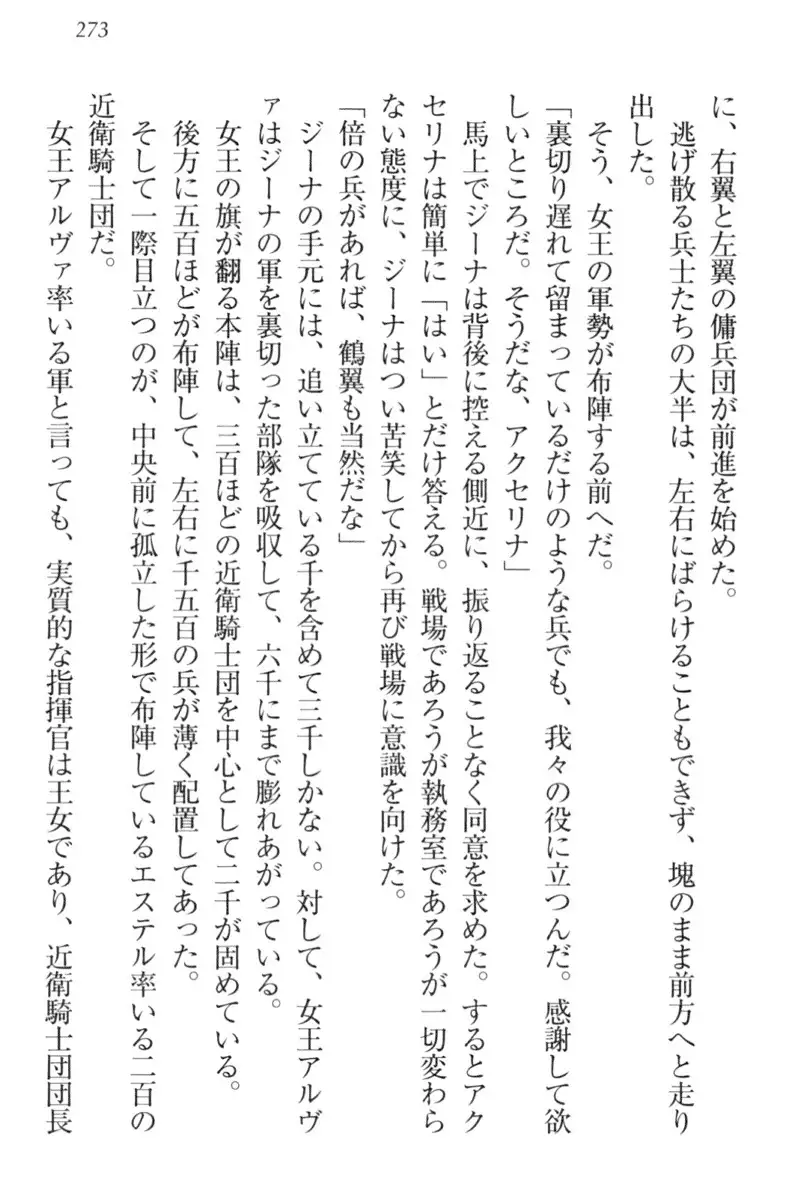 273
に、右翼と左翼の傭兵団が前進を始めた。
　逃げ散る兵士たちの大半は、左右にばらけることもできず、塊のまま前方へと走り
出した。
　そう、女王の軍勢が布陣する前へだ。
「裏切り遅れて留まっているだけのような兵でも、我々の役に立つんだ。感謝して欲
しいところだ。そうだな、アクセリナ」
　馬上でジーナは背後に控える側近に、振り返ることなく同意を求めた。するとアク
セリナは簡単に「はい」とだけ答える。戦場であろうが執務室であろうが一切変わら
ない態度に、ジーナはつい苦笑してから再び戦場に意識を向けた。
「倍の兵があれば、鶴翼も当然だな」
　ジーナの手元には、追い立てている千を含めて三千しかない。対して、女王アルヴ
ァはジーナの軍を裏切った部隊を吸収して、六千にまで膨れあがっている。
　女王の旗が翻る本陣は、三百ほどの近衛騎士団を中心として二千が固めている。
　後方に五百ほどが布陣して、左右に千五百の兵が薄く配置してあった。
　そして一際目立つのが、中央前に孤立した形で布陣しているエステル率いる二百の
近衛騎士団だ。
　女王アルヴァ率いる軍と言っても、実質的な指揮官は王女であり、近衛騎士団団長